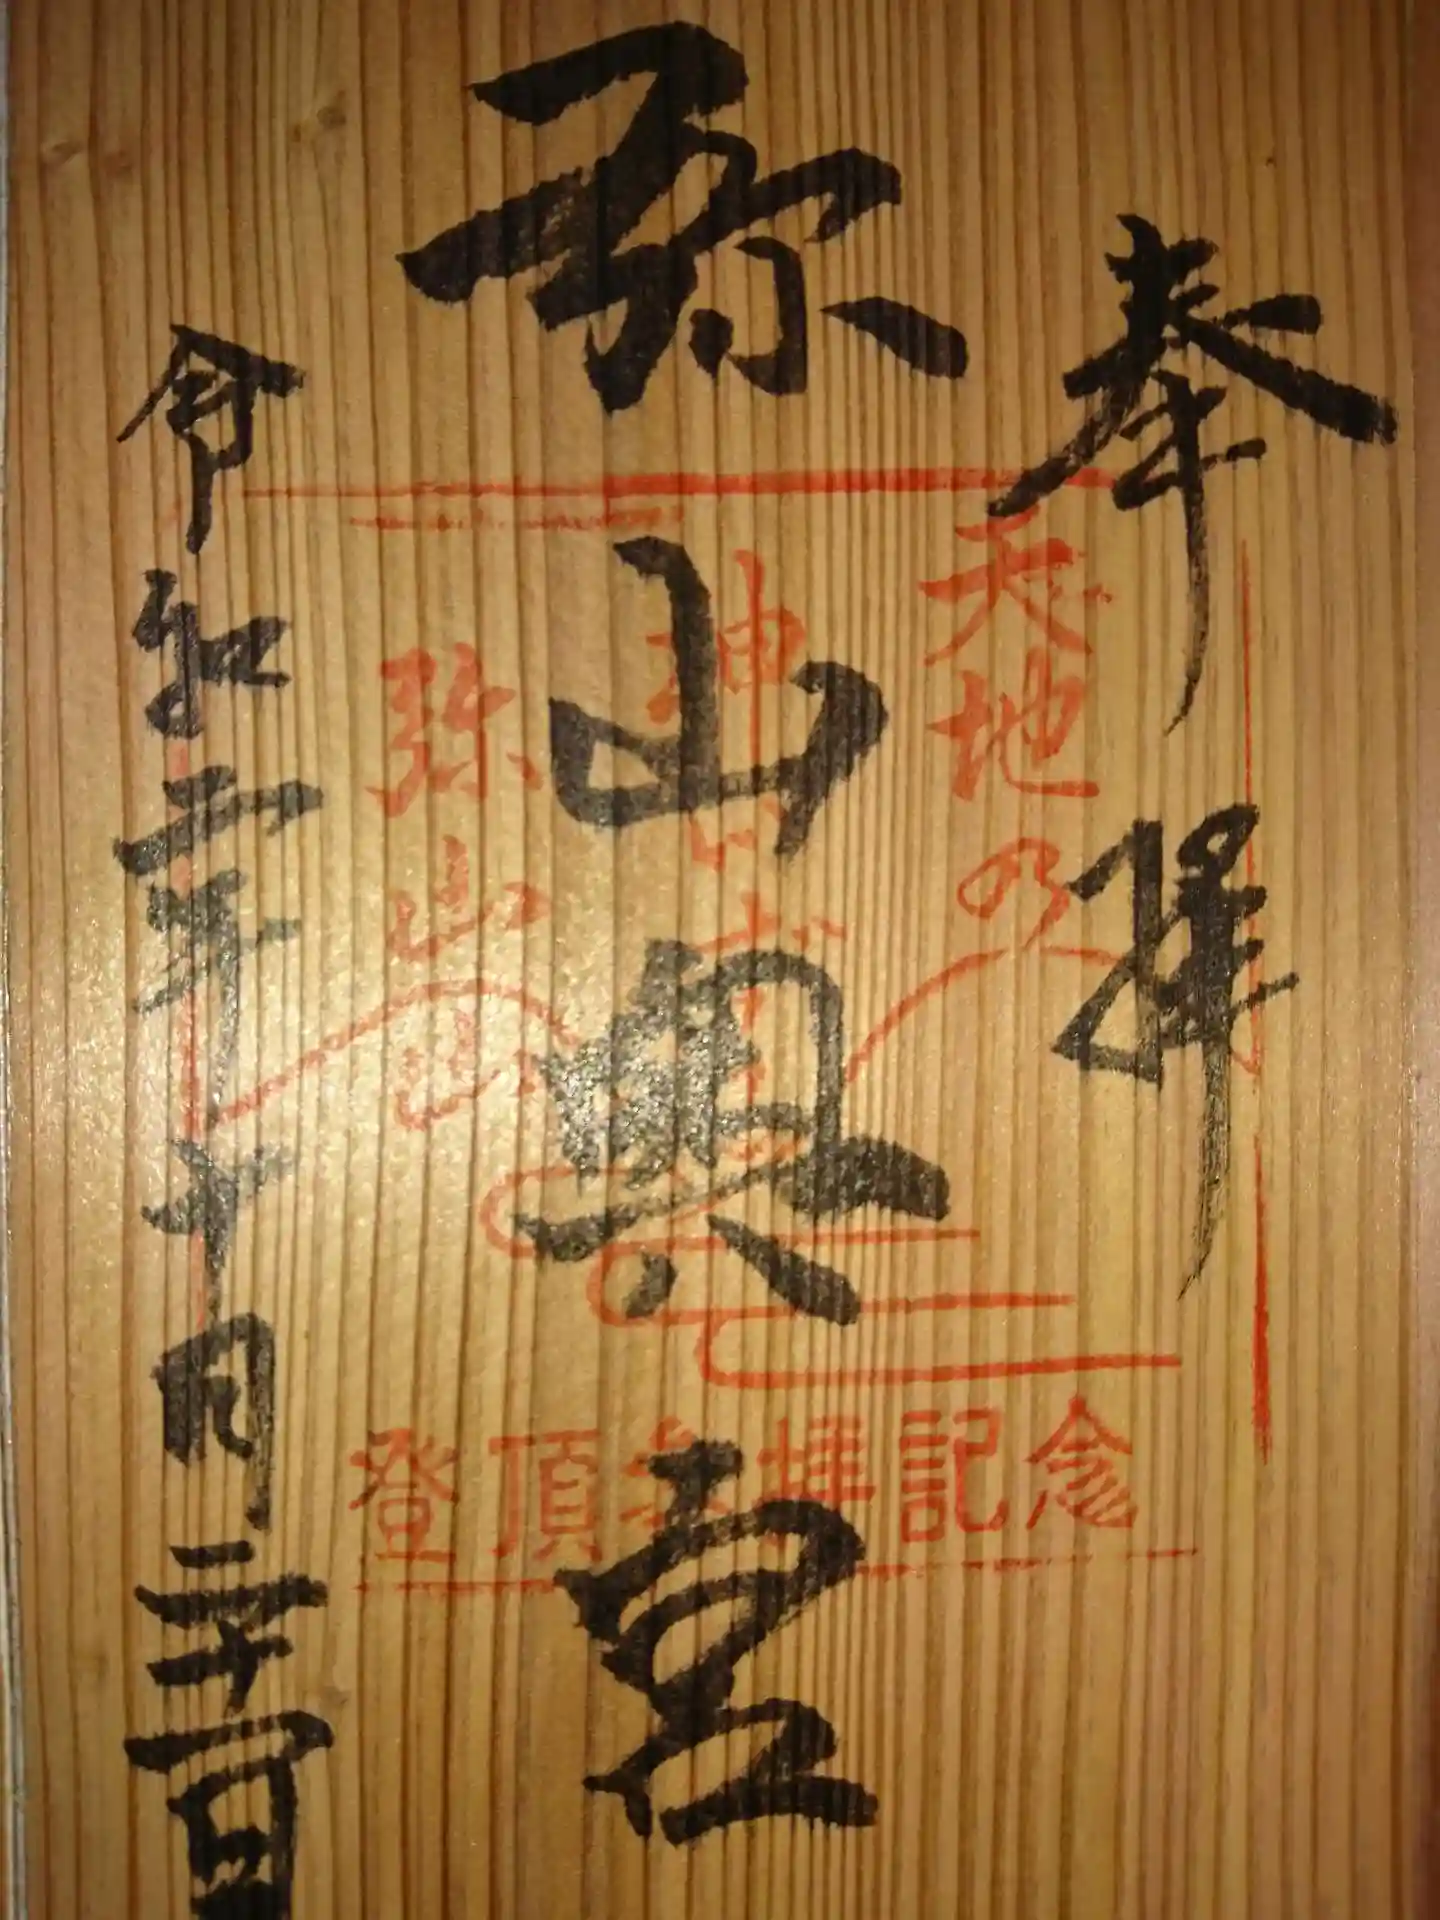 奉拝
弥山奥宮
令和二年十月
天地の
神います
弥山
登頂参拝記念